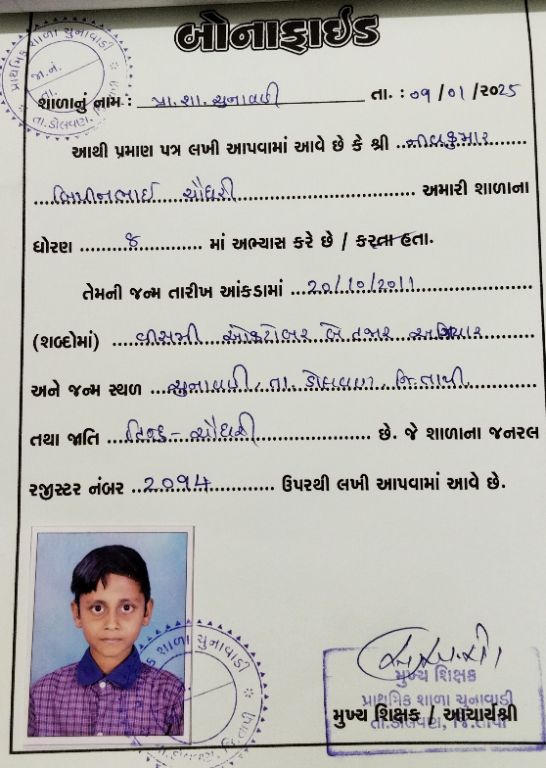 બોનાફાઈડ
પ્રાથમિક શાળા ચુનાવાડી
જા.નં.
તા.
તા.ડોલવણ,
શાળાનું નામ : પ્રા.શા.ચુનાવાડી તા. : ૦૧/૦૧/૨૦૨5
આથી પ્રમાણ પત્ર લખી આપવામાં આવે છે કે શ્રી નીલકુમાર
બિપીનભાઈ ચૌધરી અમારી શાળાના
ધોરણ ૪ માં અભ્યાસ કરે છે / કરતા હતા.
તેમની જન્મ તારીખ આંકડામાં 20/10/2011
(શબ્દોમાં) વીસમી ઓક્ટોબર બે હજાર અગિયાર
અને જન્મ સ્થળ ચુનાવાડી, તા. ડોલવણ જિ.તાપી
તથા જાતિ હિન્દુ - ચૌધરી છે. જે શાળાના જનરલ
રજીસ્ટર નંબર 2094 ઉપરથી લખી આપવામાં આવે છે.
શાળા ચુનાવાડી
તા.ડોલવણ, જિ.તાપી
મુખ્ય શિક્ષક
પ્રાથમિક શાળા ચુનાવાડી
તા.ડોલવણ, જિ.તાપી
મુખ્ય શિક્ષક / આચાર્યશ્રી